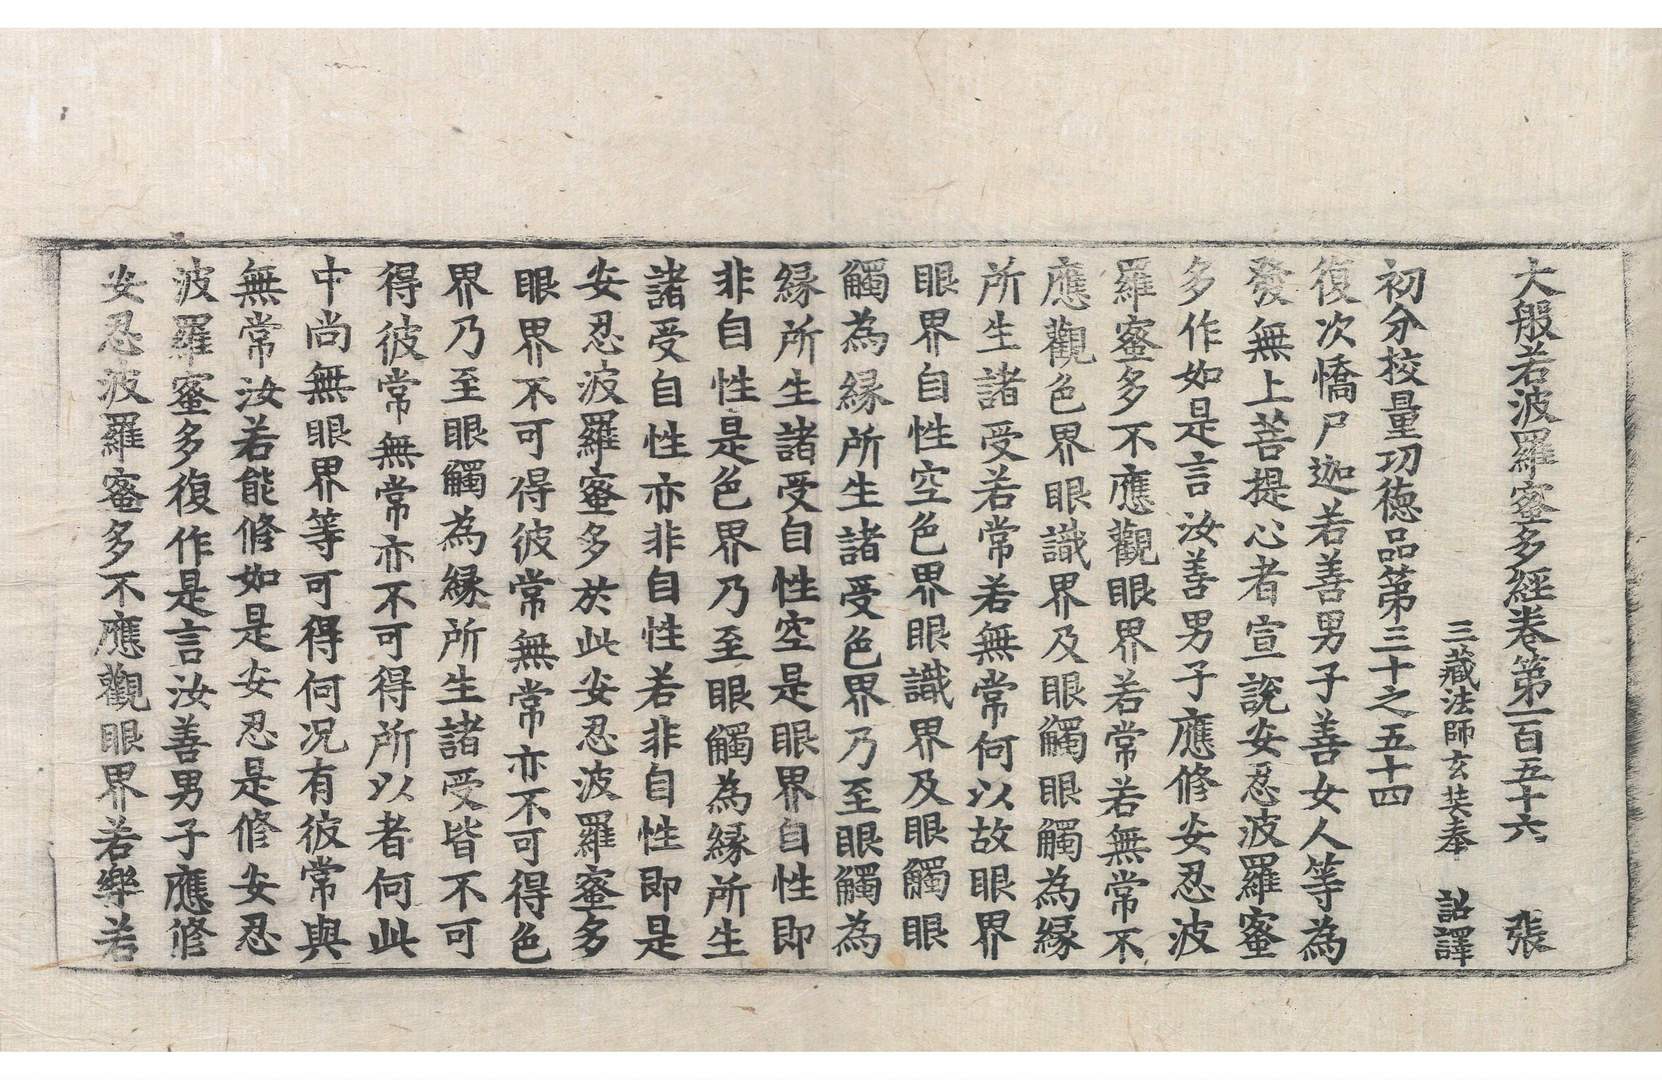 大般若波羅蜜多經卷第一百五十六 張
三藏法師玄奘奉 詔譯
初分校量功德品第三十之五十四
復次憍尸迦若善男子善女人等為
發無上菩提心者宣說安忍波羅蜜
多作如是言汝善男子應修安忍波
羅蜜多不應觀眼界若常若無常不
應觀色界眼識界及眼觸眼觸為緣
所生諸受若常若無常何以故眼界
眼界自性空色界眼識界及眼觸眼
觸為緣所生諸受色界乃至眼觸為
緣所生諸受自性空是眼界自性即
非自性是色界乃至眼觸為緣所生
諸受自性亦非自性若非自性即是
安忍波羅蜜多於此安忍波羅蜜多
眼界不可得彼常無常亦不可得色
界乃至眼觸為緣所生諸受皆不可
得彼常無常亦不可得所以者何此
中尚無眼界等可得何況有彼常與
無常汝若能修如是安忍是修安忍
波羅蜜多復作是言汝善男子應修
安忍波羅蜜多不應觀眼界若樂若